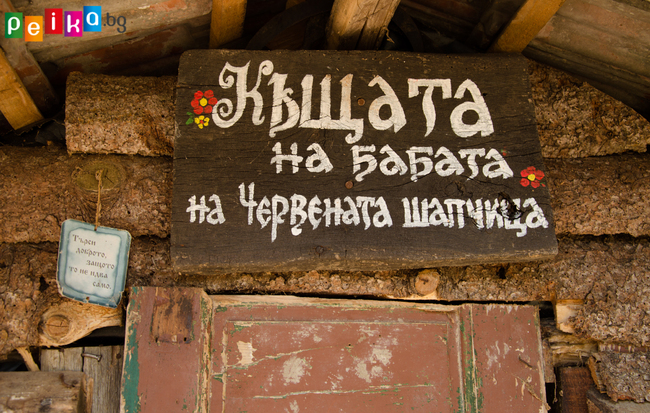 peika.bg
Къщата
на бабата
на Червената шапчица
Търси
доброто,
защото
то не идва
само.